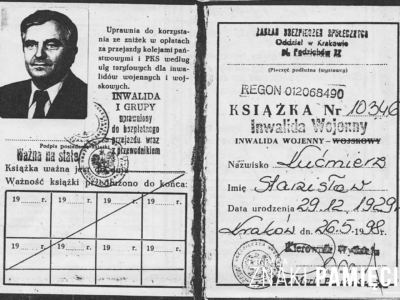 Uprawnia do korzysta-
nia ze zniżek w opłatach
za przejazdy kolejami pań-
stwowymi i PKS według
ulg taryfowych dla inwa-
lidów wojennych i woj-
skowych.
INWALIDA
I GRUPY
uprawniony
do bezpłatnego
przejazdu wraz
z przewodnikiem
Podpis
Ważna na stałe
Książka ważna jest do dnia
Ważność książki przedłużono do końca:
19 r. 19 r. 19 r. 19 r.
19 r. 19 r. 19 r. 19 r.
19 r. 19 r. 19 r. 19 r.
ZAKŁAD UBEZPIECZEŃ SPOŁECZNYCH
Oddział w Krakowie
pl. Pędzichów 27
(Pieczęć podłużna wystawcy)
REGON 012068490
KSIĄŻKA Nr 10346
Inwalida Wojenny
INWALIDA WOJENNY — WOJSKOWY
Nazwisko Kuśmierz
Imię Stanisław
Data urodzenia 29.12.1929r
Kraków dn. 26.5.1998r.
Kierownik Wydziału
ZNAKI PAMIĘCI